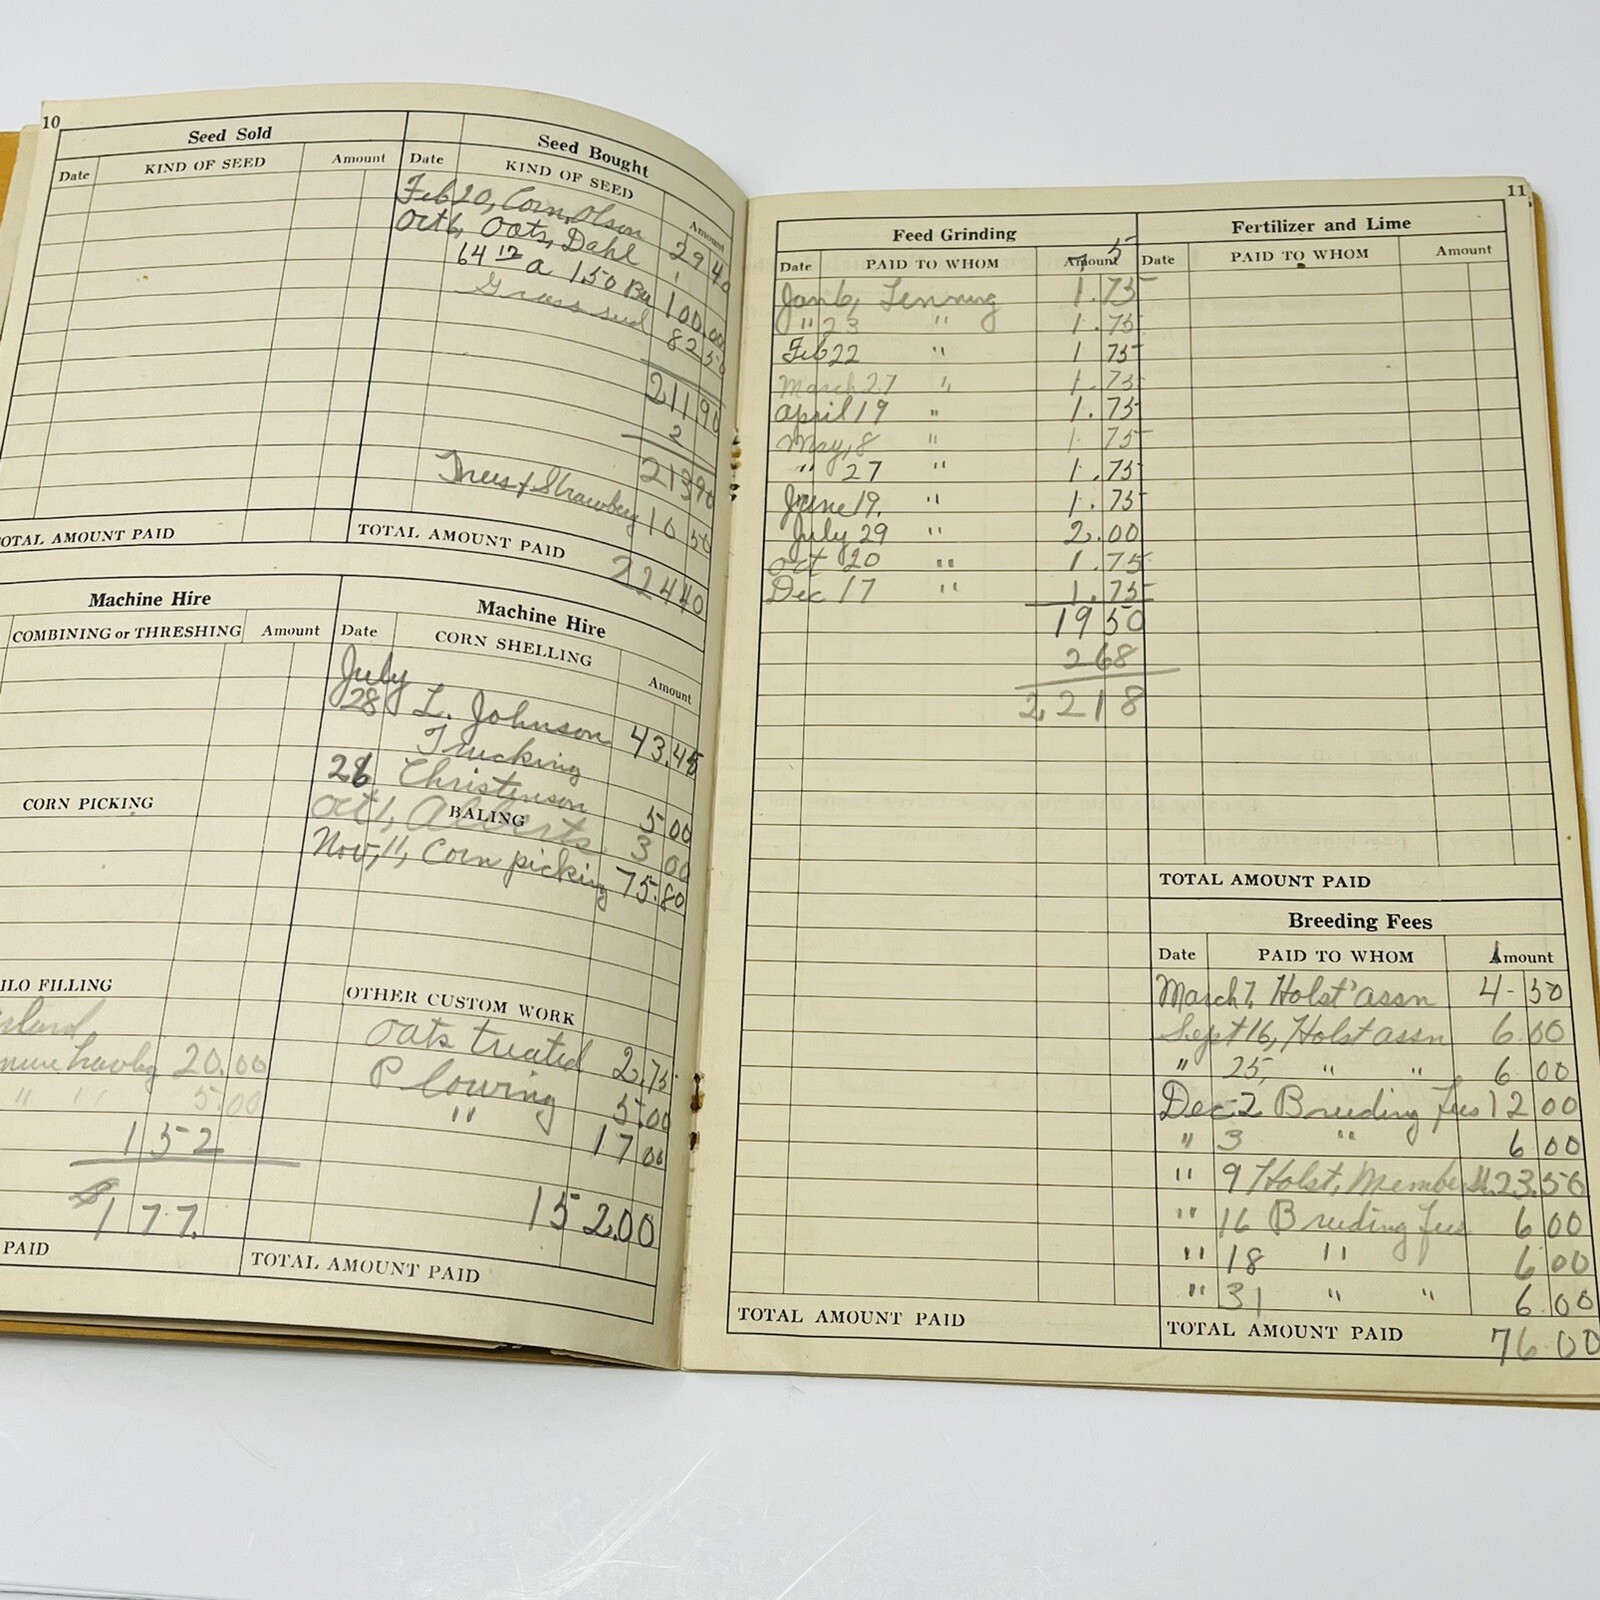 10
Seed Sold
Date KIND OF SEED Amount
TOTAL AMOUNT PAID
Seed Bought
Date KIND OF SEED Amount
Feb 20, Corn, Olson 29 40
Oct 6, Oats, Dahl
64 12 a 1.50 Bu 100.00
Grass seed 82 50
211 90
2
213 90
Trees + Strawberry 10 50
TOTAL AMOUNT PAID 224 40
Machine Hire
COMBINING or THRESHING Amount
CORN PICKING
ILO FILLING
20.00
" " 5.00
152
$177.
PAID
Machine Hire
Date CORN SHELLING Amount
July
28 L. Johnson 43.45
Trucking
28 Christenson 5 00
BALING
Oct 1, Alberts 3 00
Nov, 11, Corn picking 75.80
OTHER CUSTOM WORK
Oats treated 2.75
Plowing 5.00
" 17 00
152.00
TOTAL AMOUNT PAID
11
Feed Grinding
Date PAID TO WHOM Amount
Jan 6, 1.75
" 23 " 1.75
Feb 22 " 1 75
March 27 " 1.75
April 19 " 1.75
May, 8 " 1 75
" 27 " 1.75
June 19, " 1.75
July 29 " 2.00
Oct 20 " 1.75
Dec 17 " 1.75
19 50
2 68
22 18
TOTAL AMOUNT PAID
Fertilizer and Lime
Date PAID TO WHOM Amount
TOTAL AMOUNT PAID
Breeding Fees
Date PAID TO WHOM Amount
March 7, Holst' assn 4-50
Sept 16, Holst assn 6 00
" 25, " " 6 00
Dec-2 Breeding fees 12 00
" 3 " 6 00
" 9 Holst, Member 23.50
" 16 Breeding fees 6 00
" 18 " 6 00
" 31 " " 6.00
TOTAL AMOUNT PAID 76 00